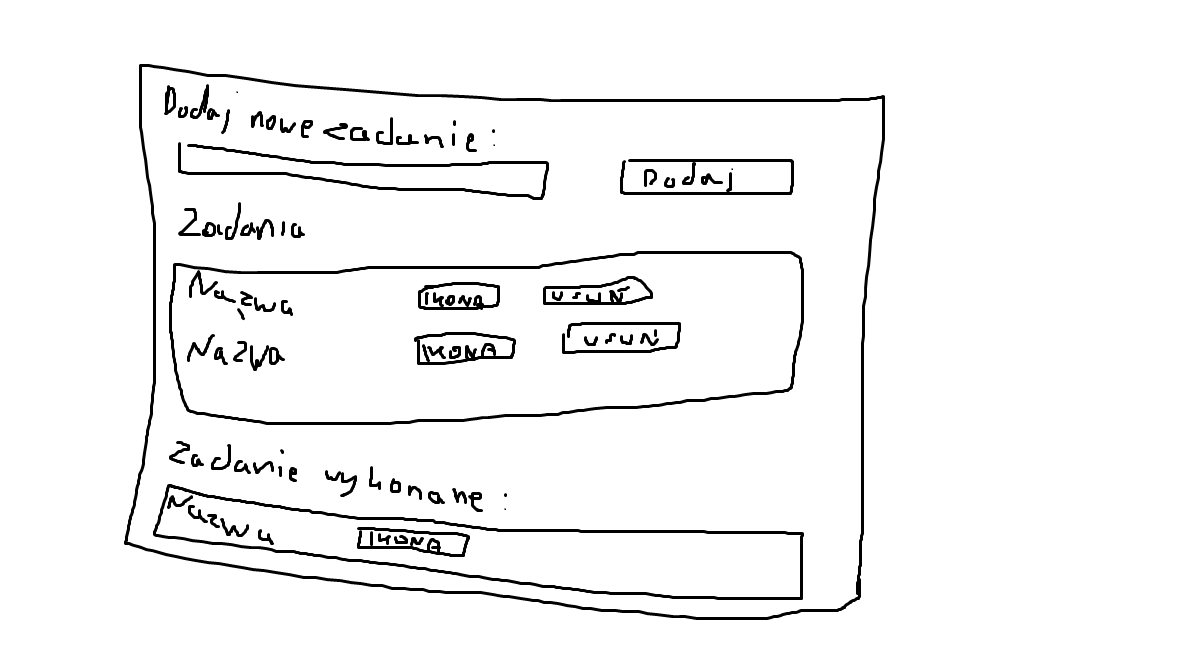 Dodaj nowe zadanie:
Dodaj
Zadania
Nazwa IKONA USUŃ
Nazwa IKONA USUŃ
Zadanie wykonane:
Nazwa IKONA